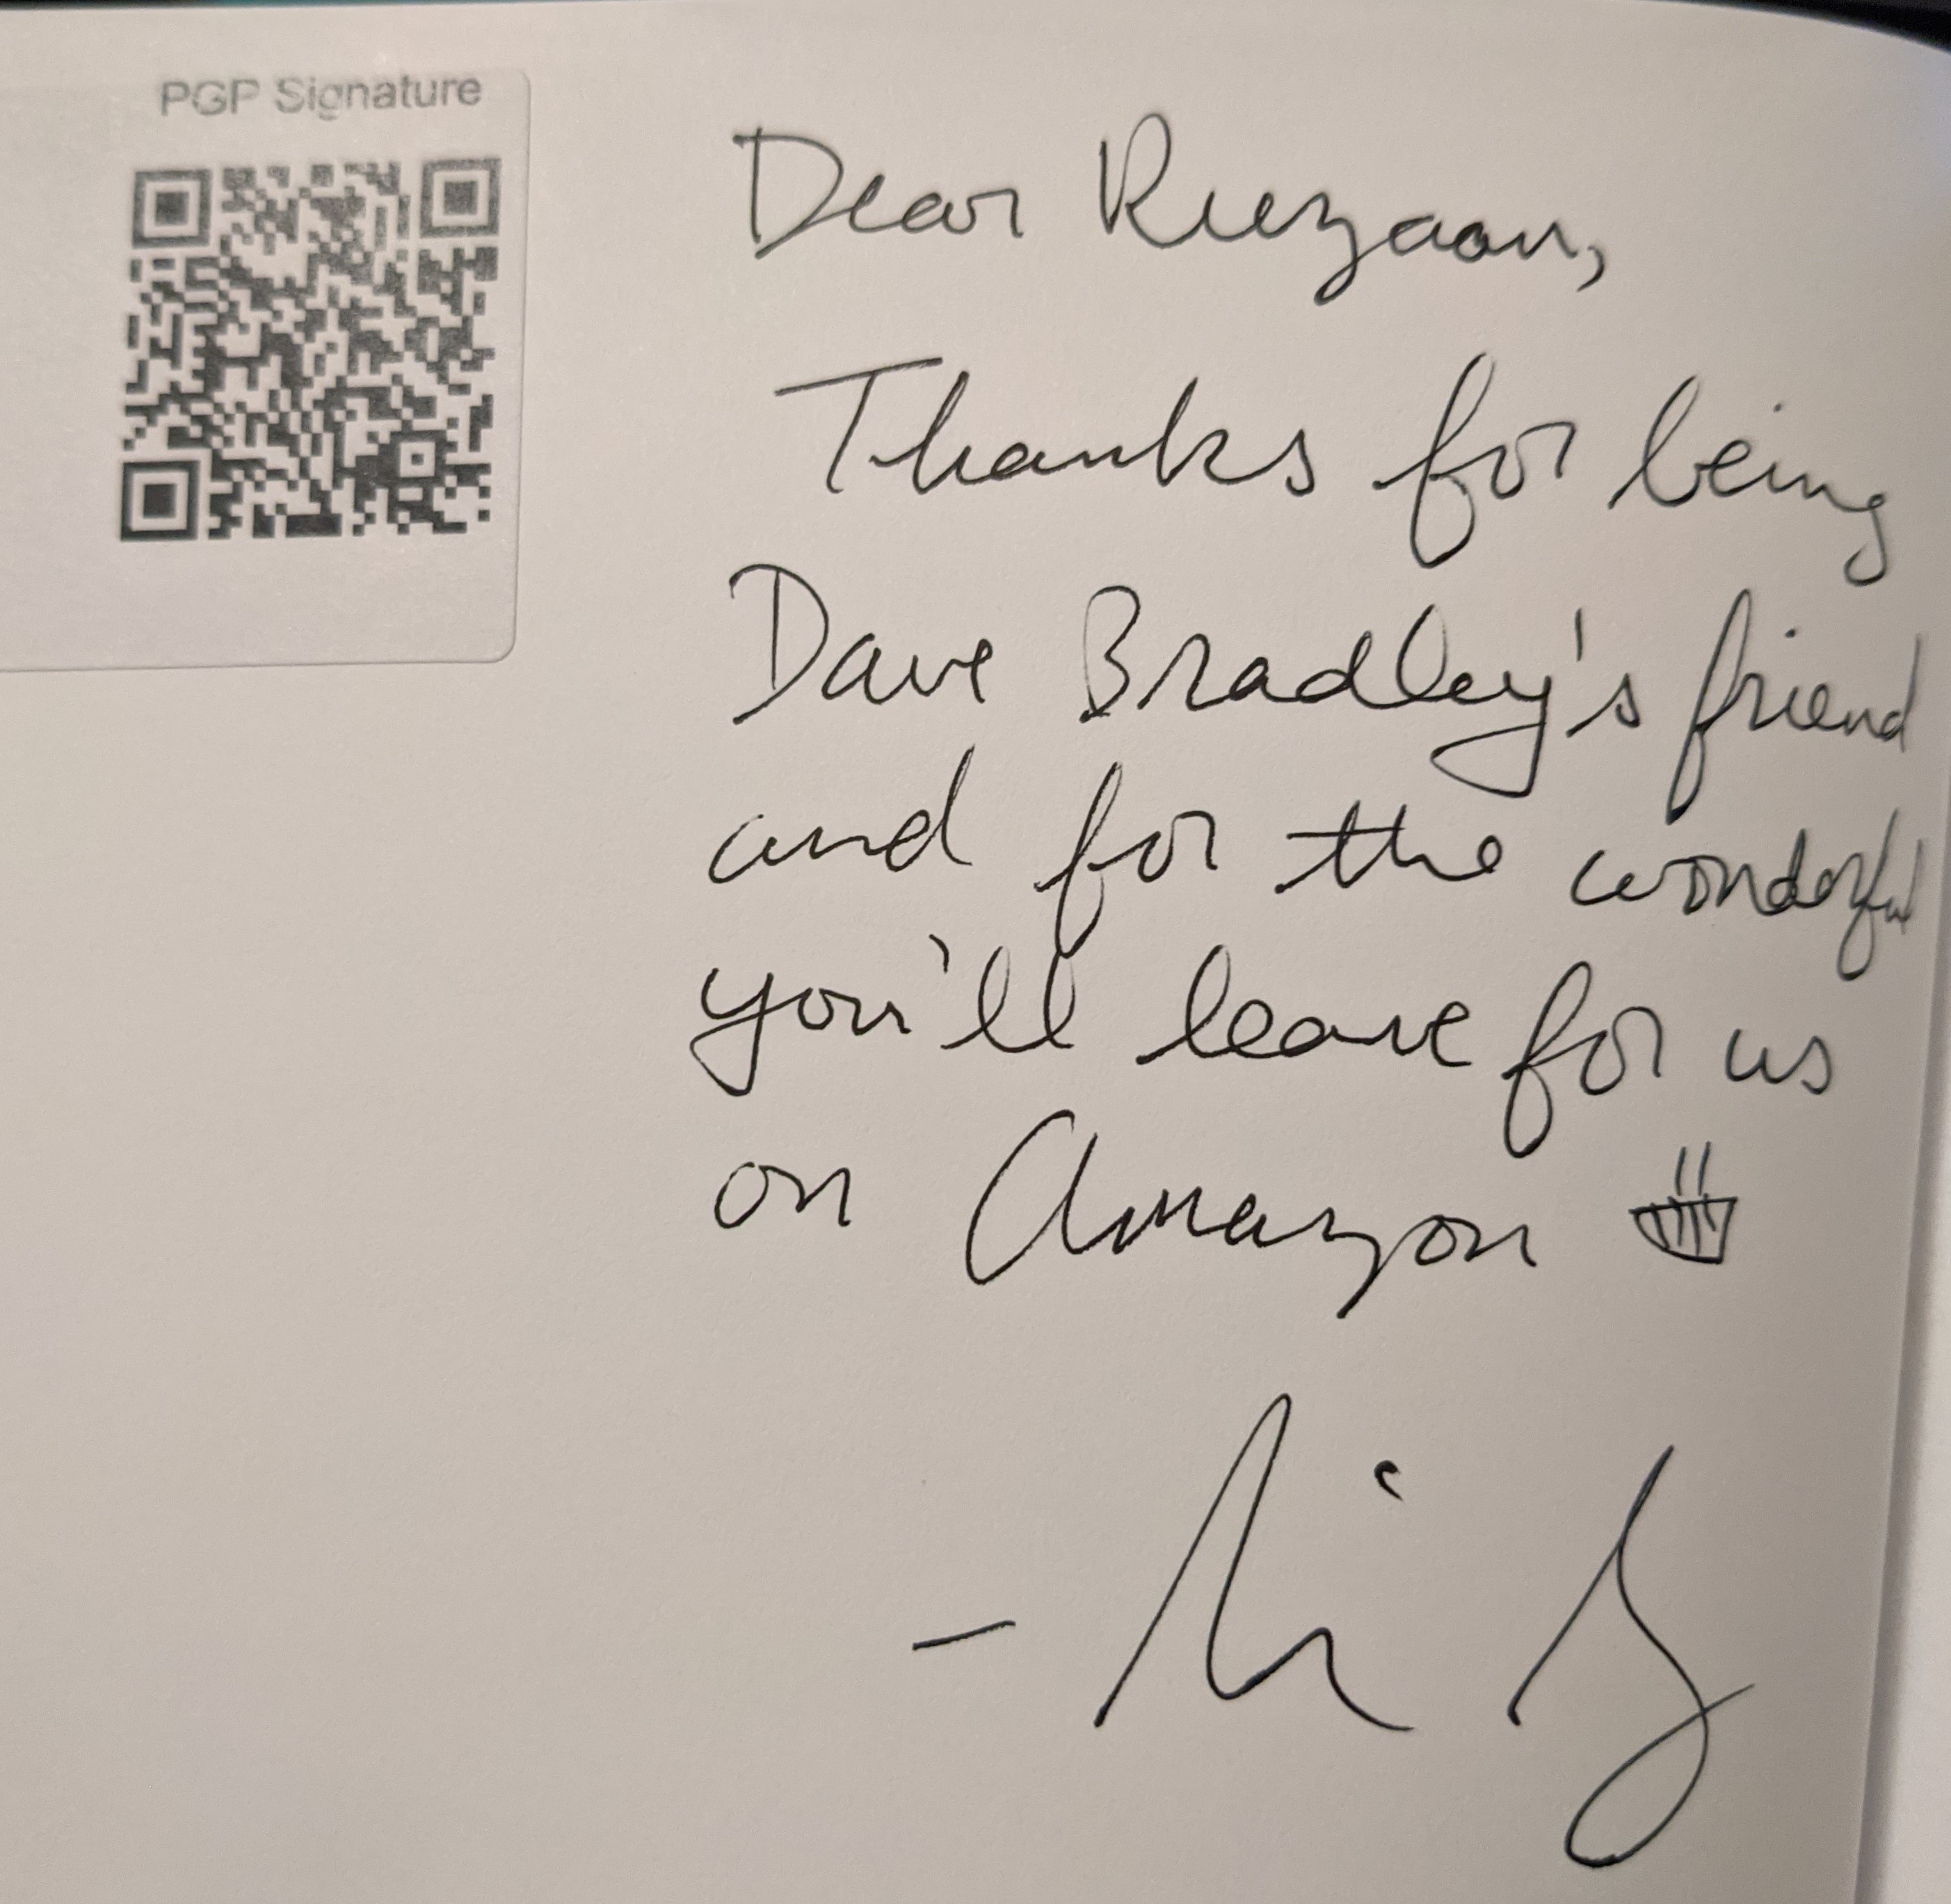 PGP Signature
Dear Ruzaan,
Thanks for being
Dave Bradley's friend
and for the wonderful
you'll leave for us
on Amazon